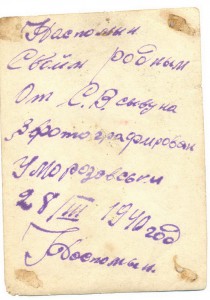 Наспомин
Своїм родным
От С. В. сывуна
Зфотографирован
У морозовськи
28/III 1940 год
Поспомын.